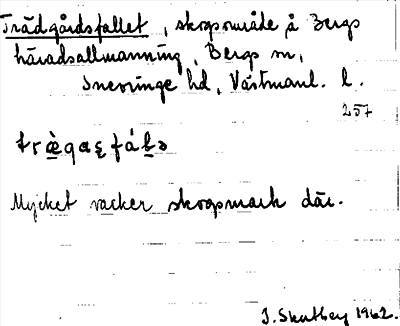 Trädgårdsfallet, skogsområde å Bergs
häradsallmänning, Bergs sn,
Snevringe hd, Västmanl. l.
257
Mycket vacker skogsmark där.
J. Skutberg 1962.